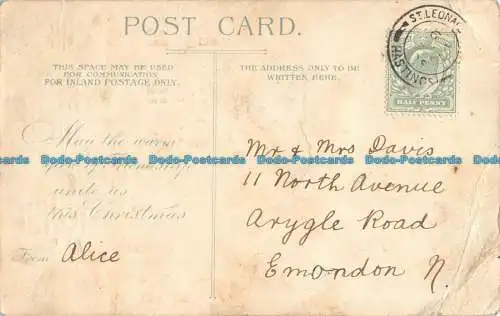 POST CARD.
THIS SPACE MAY BE USED
FOR COMMUNICATION
FOR INLAND POSTAGE ONLY.
THE ADDRESS ONLY TO BE
WRITTEN HERE.
HALF PENNY
May the warm
unite us
this Christmas
From Alice
Mr & Mrs Davis
11 North Avenue
Arygle Road
Emondon N.
Dodo-Postcards Dodo-Postcards Dodo-Postcards Dodo-Postcards Dodo-Postcards